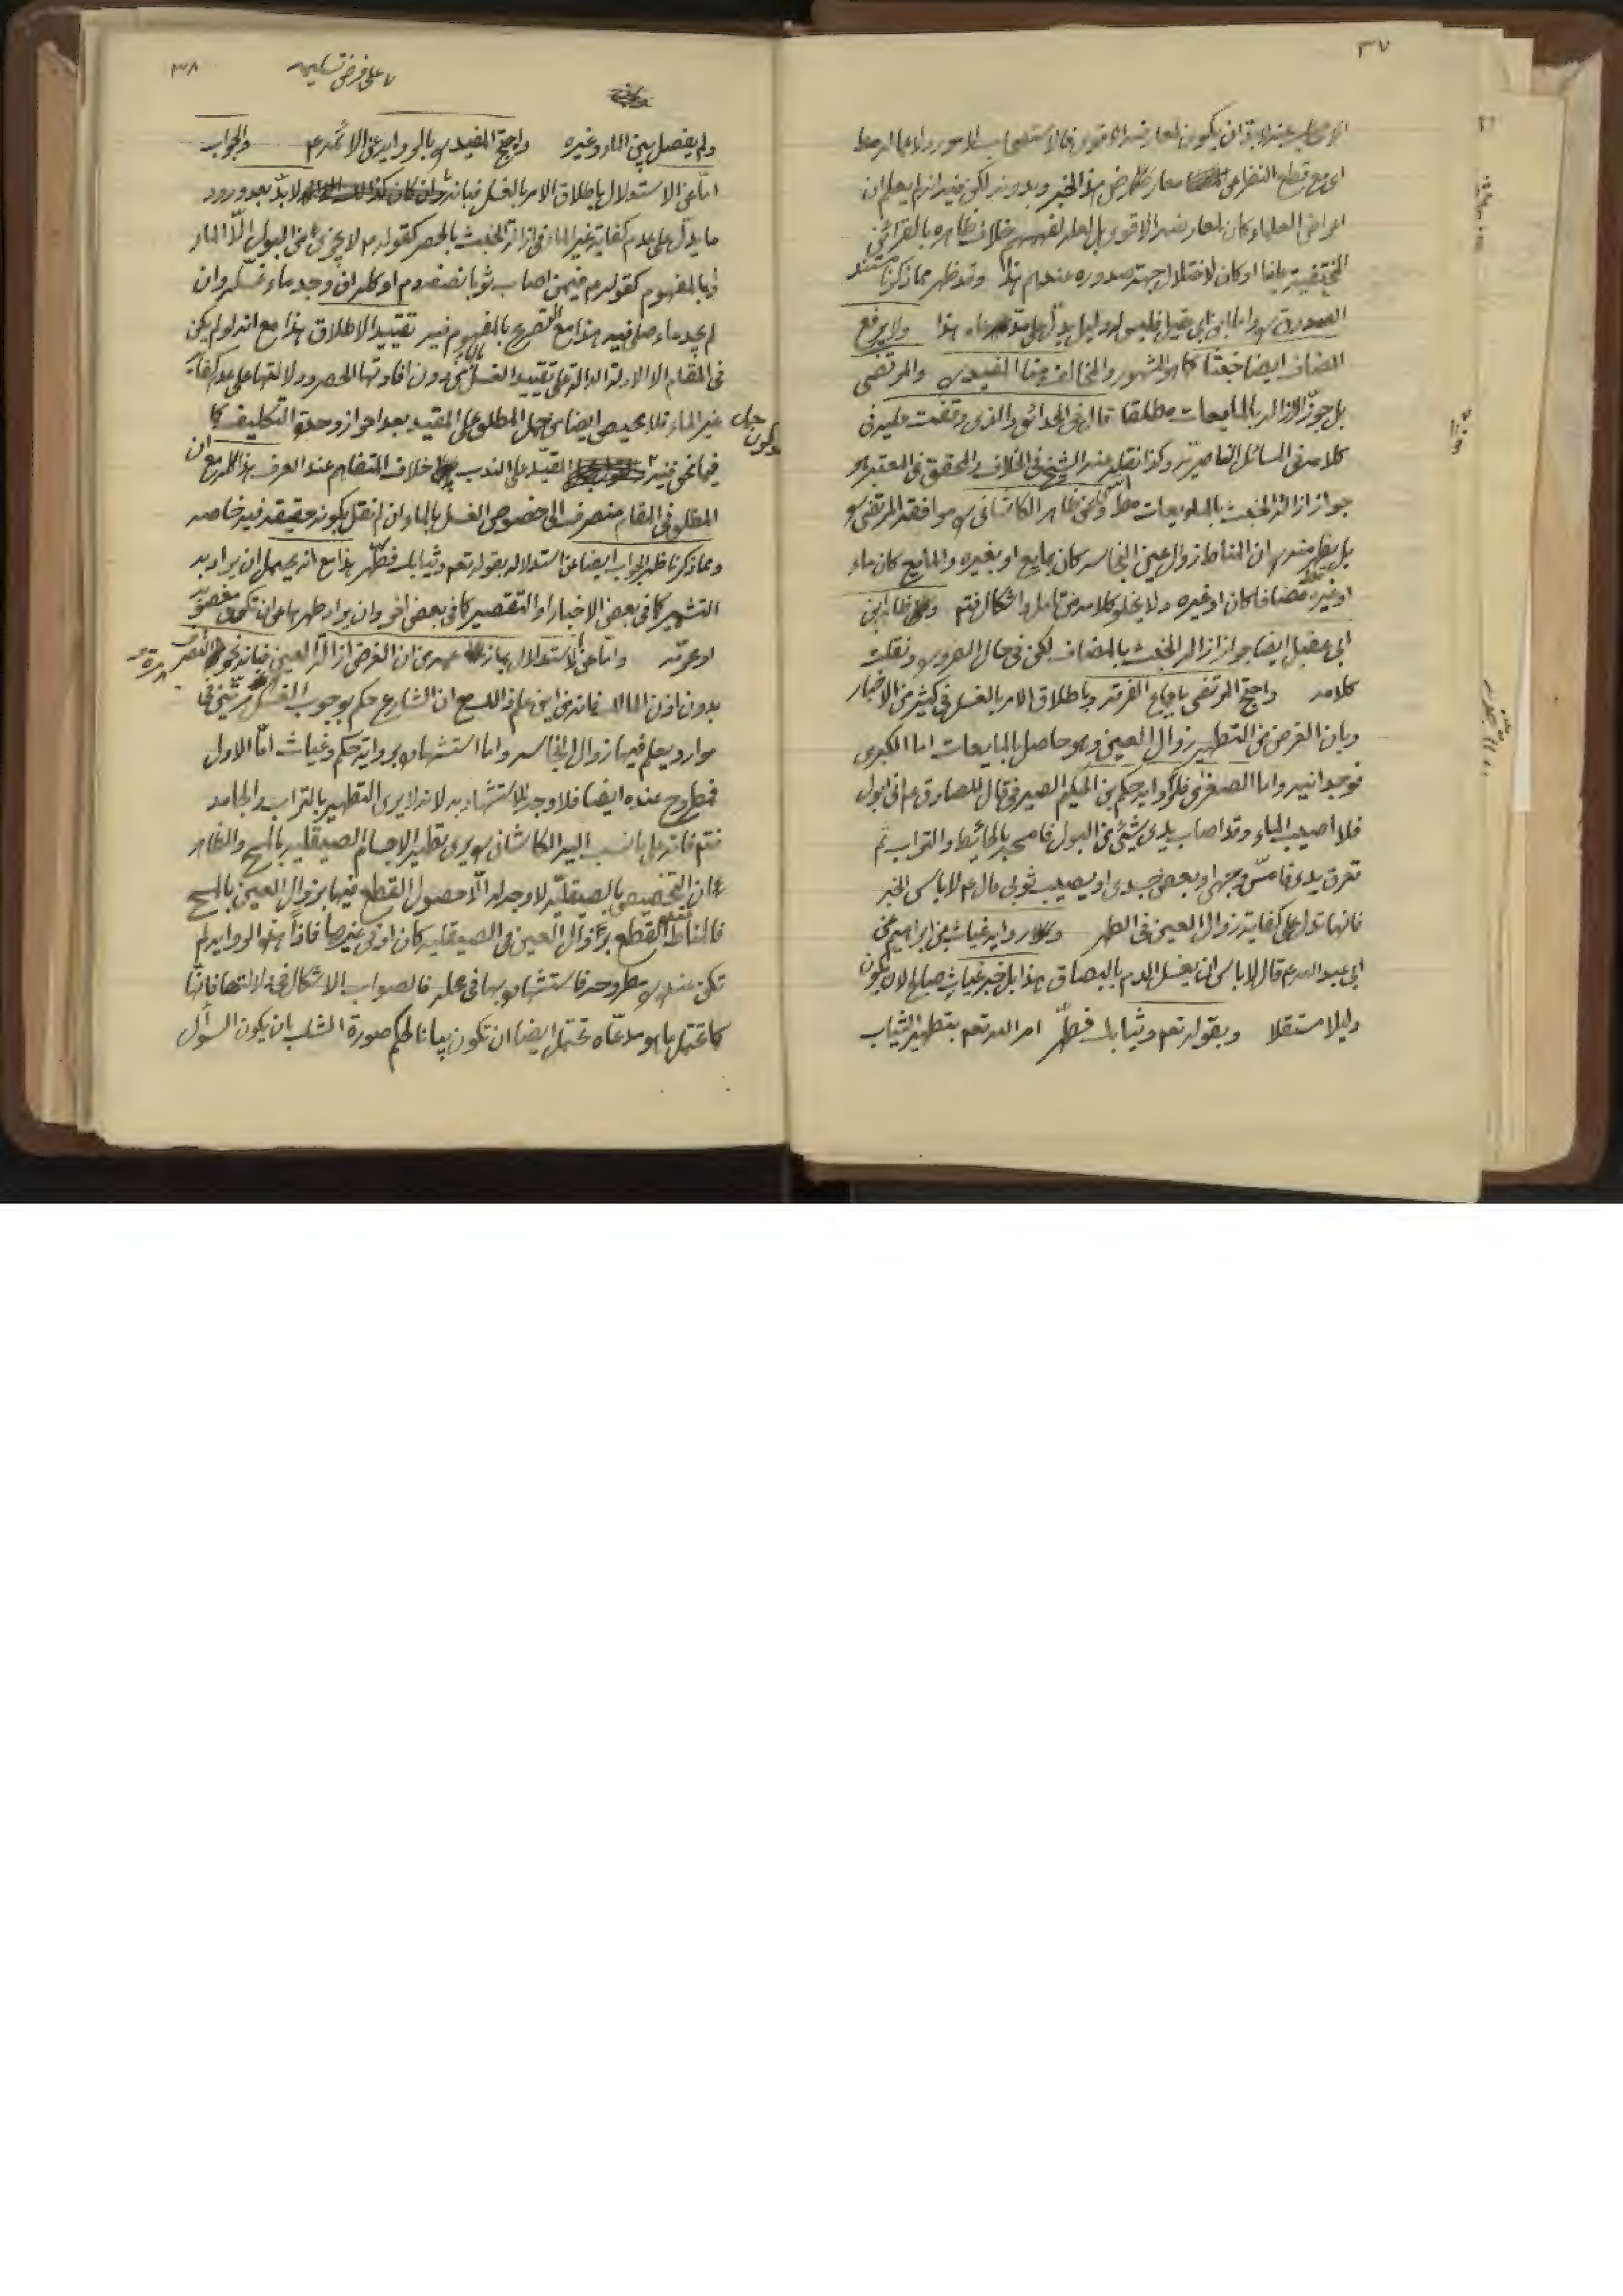 ٣٧
اى مع قطع النظر عن معارضة هذا الخبر وبدونه لكن فيه انه لم يعلم ان
اعراض العلماء كان لمعارضته الاقوى بل لعله لفهمهم خلاف ظاهره بالقرائن
المختفية علينا او كان لاختلال جهة صدوره عندهم هذا وقد ظهر مما ذكرنا مستند
الصدوق واما ابن ابى عقيل فليس له دليل يدل على مدعاه هذا ولا يرفع
المضاف ايضا خبثا كما هو المشهور والمخالف هنا المفيد والمرتضى
بل جوّز الازالة بالمايعات مطلقا قال فى الحدائق والذى وقفت عليه فى
كلامه فى المسائل الناصرية وكذا نقله عنه الشيخ فى الخلاف والمحقق فى المعتبر هو
جواز ازالة الخبث بالمايعات مط وعن ظاهر الكاشانى موافقة المرتضى
بل يظهر منه ان المناط زوال عين النجاسة كان بمايع او بغيره والمايع كان ماء
او غيره مضافا كان او غيره ولا يخلو كلامه من تامل واشكال فتم وعن ظاهر ابن
ابى عقيل ايضا جواز ازالة الخبث بالمضاف لكن فى حال الضرورة ونقلت
كلامه واحتج المرتضى باجماع الفرقة وباطلاق الامر بالغسل فى كثير من الاخبار
وبان الغرض من التطهير زوال العين وهو حاصل بالمايعات اما الكبرى
فوجدانية واما الصغرى فلرواية حكم بن الحكيم الصيرفى قال للصادق ع انى ابول
فلا اصيب الماء وقد اصاب يدى شيئ من البول فامسحه بالحائط والتراب ثم
تعرق يدى فامسّ وجهى او بعض جسدى او يصيب ثوبى قال ع لا باس الخبر
فانها تدل على كفاية زوال العين فى الطهر ورواية غياث بن ابراهيم عن
ابى عبد الله ع قال لا باس ان يغسل الدم بالبصاق هذا بل خبر غياث صالح لان يكون
دليلا مستقلا وبقوله تعم وثيابك فطهّر امر الله تعم بتطهير الثياب
٣٨
على فرض تسليمه
ولم يفصل بين الماء وغيره واحتج المفيد بالرواية عن الائمة ع والجواب
امّا عن الاستدلال باطلاق الامر بالغسل فبانه لا بدّ بعد ورود
ما يدلّ على عدم كفاية غير الماء فى ازالة الخبث بالحصر كقوله ع لا يجزى من البول الّا الماء
وبالمفهوم كقوله ع فيمن اصاب ثوبا نصفه دم او كله ان وجد ماء غسله وان
لم يجد ماء صلى فيه هذا مع التصريح بالمفهوم فيه تقييد الاطلاق هذا مع انه لو لم يكن
فى المقام الا الادلة الدالة على تقييد الغسل بالماء من دون افادتها الحصر ودلالتها على عدم كفاية
غير الماء فلا محيص ايضا من حمل المطلق على المقيد بعد احراز وحدة التكليف كما
فيما نحن فيه وكون حمل المقيّد على الندب خلاف المتفاهم عند العرف هذا كله مع ان
المطلق فى المقام منصرف الى خصوص الغسل بالماء ان لم نقل بكونه حقيقة فيه خاصه
ومما ذكرنا ظهر الجواب ايضا عن استدلاله بقوله تعم وثيابك فطهّر هذا مع انه يحتمل ان يراد به
التشمير كما فى بعض الاخبار او التقصير كما فى بعض اخر وان يراد طهرها عن ان تكون مغصوبة
او محرّمه وامّا عن الاستدلال بان الغرض ازالة العين فبانه نحو التصرف
بدون اذن المالك فانه من اين علم ذلك مع ان الشارع حكم بوجوب الغسل مرتين فى
موارد يعلم فيها زوال النجاسه واما استشهاده برواية حكم وغياث امّا الاول
فمطروح عنده ايضا فلا وجه للاستشهاد به لانه لا يرى التطهير بالتراب والجامد
فتم فانه على ما نسب اليه الكاشانى يرى تطهير الاجسام الصيقلية بالمسح والظاهر
ان التخصيص بالصيقلية لا وجه له الّا حصول القطع فيها بزوال العين بالمسح
فالمناط القطع بزوال العين فى الصيقليه كان او فى غيرها فاذاً هذه الرواية لم
تكن عنده مطروحه فاستشهاده بها فى محله فالصواب الاشكال فى دلالتها فانّها
كما تحتمل ما هو مدعّاه تحتمل ايضا ان تكون بيانا لحكم صورة الشك بان يكون السؤال